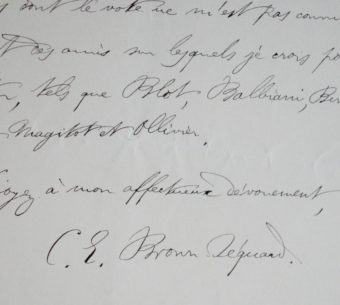 dont le vote ne m'est pas connu
amis sur lesquels je crois po
tels que Blot, Balbiani, Be
Magitot et Ollivier.
Croyez à mon affectueux dévouement,
C. E. Brown Séquard.